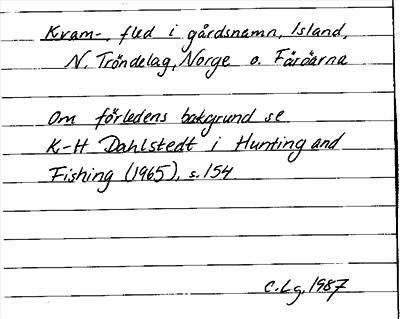 Kvam-, fled i gårdsnamn, Island,
N. Tröndelag, Norge o. Färöarna
Om förledens bakgrund se
K-H Dahlstedt i Hunting and
Fishing (1965), s. 154
C. Lg, 1987